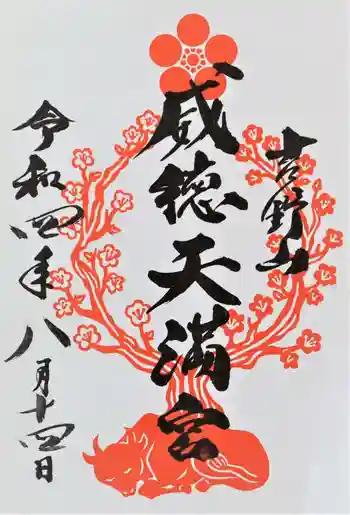 吉野山
威徳天満宮
令和四年八月十四日